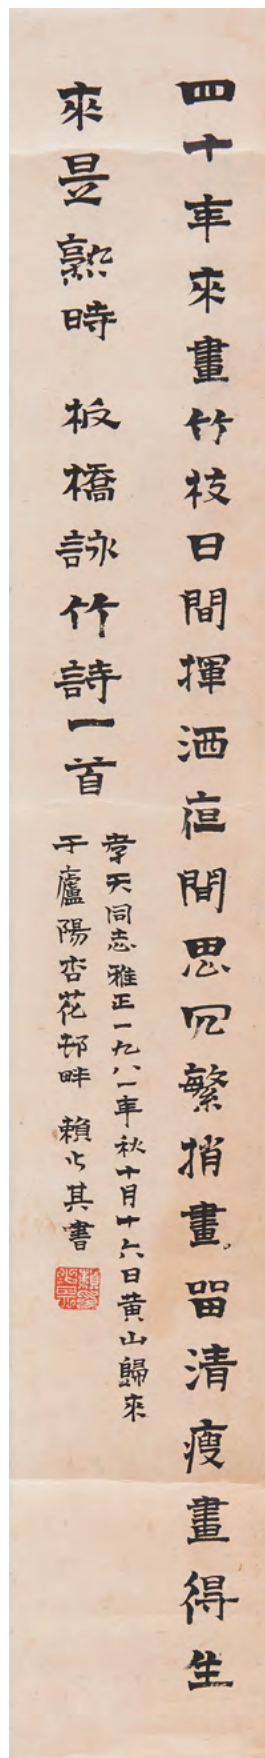 四十年來畫竹枝日間揮洒夜間思冗繁捎畫留清瘦畫得生
來是熟時 板橋詠竹詩一首
孝天同志雅正一九八一年秋十月十六日黃山歸來
于廬陽杏花邨畔 賴少其書